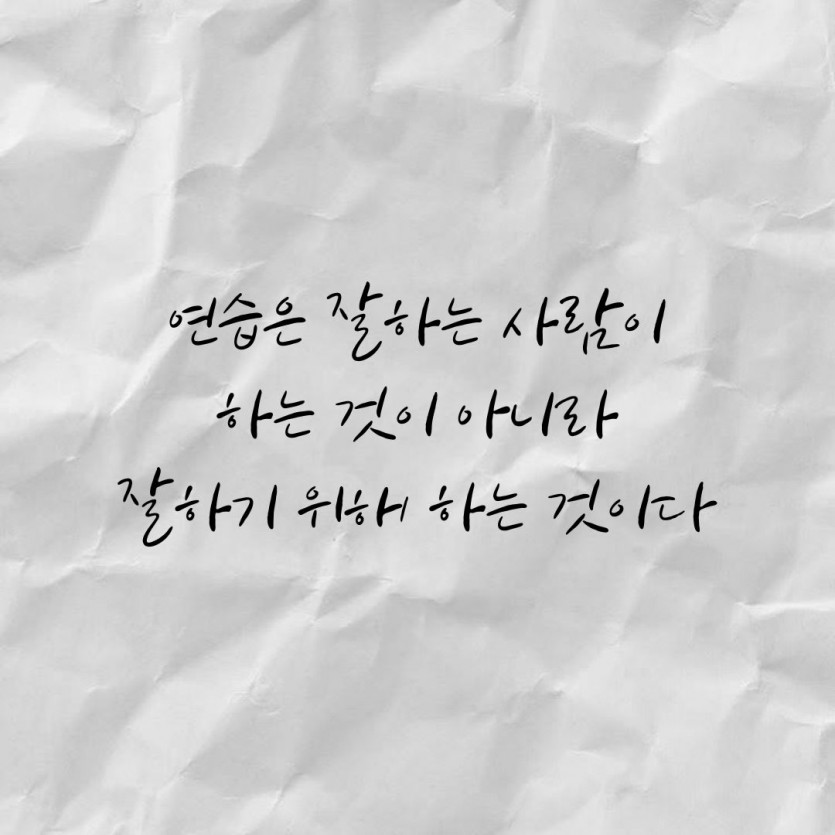 연습은 잘하는 사람이
하는 것이 아니라
잘하기 위해 하는 것이다